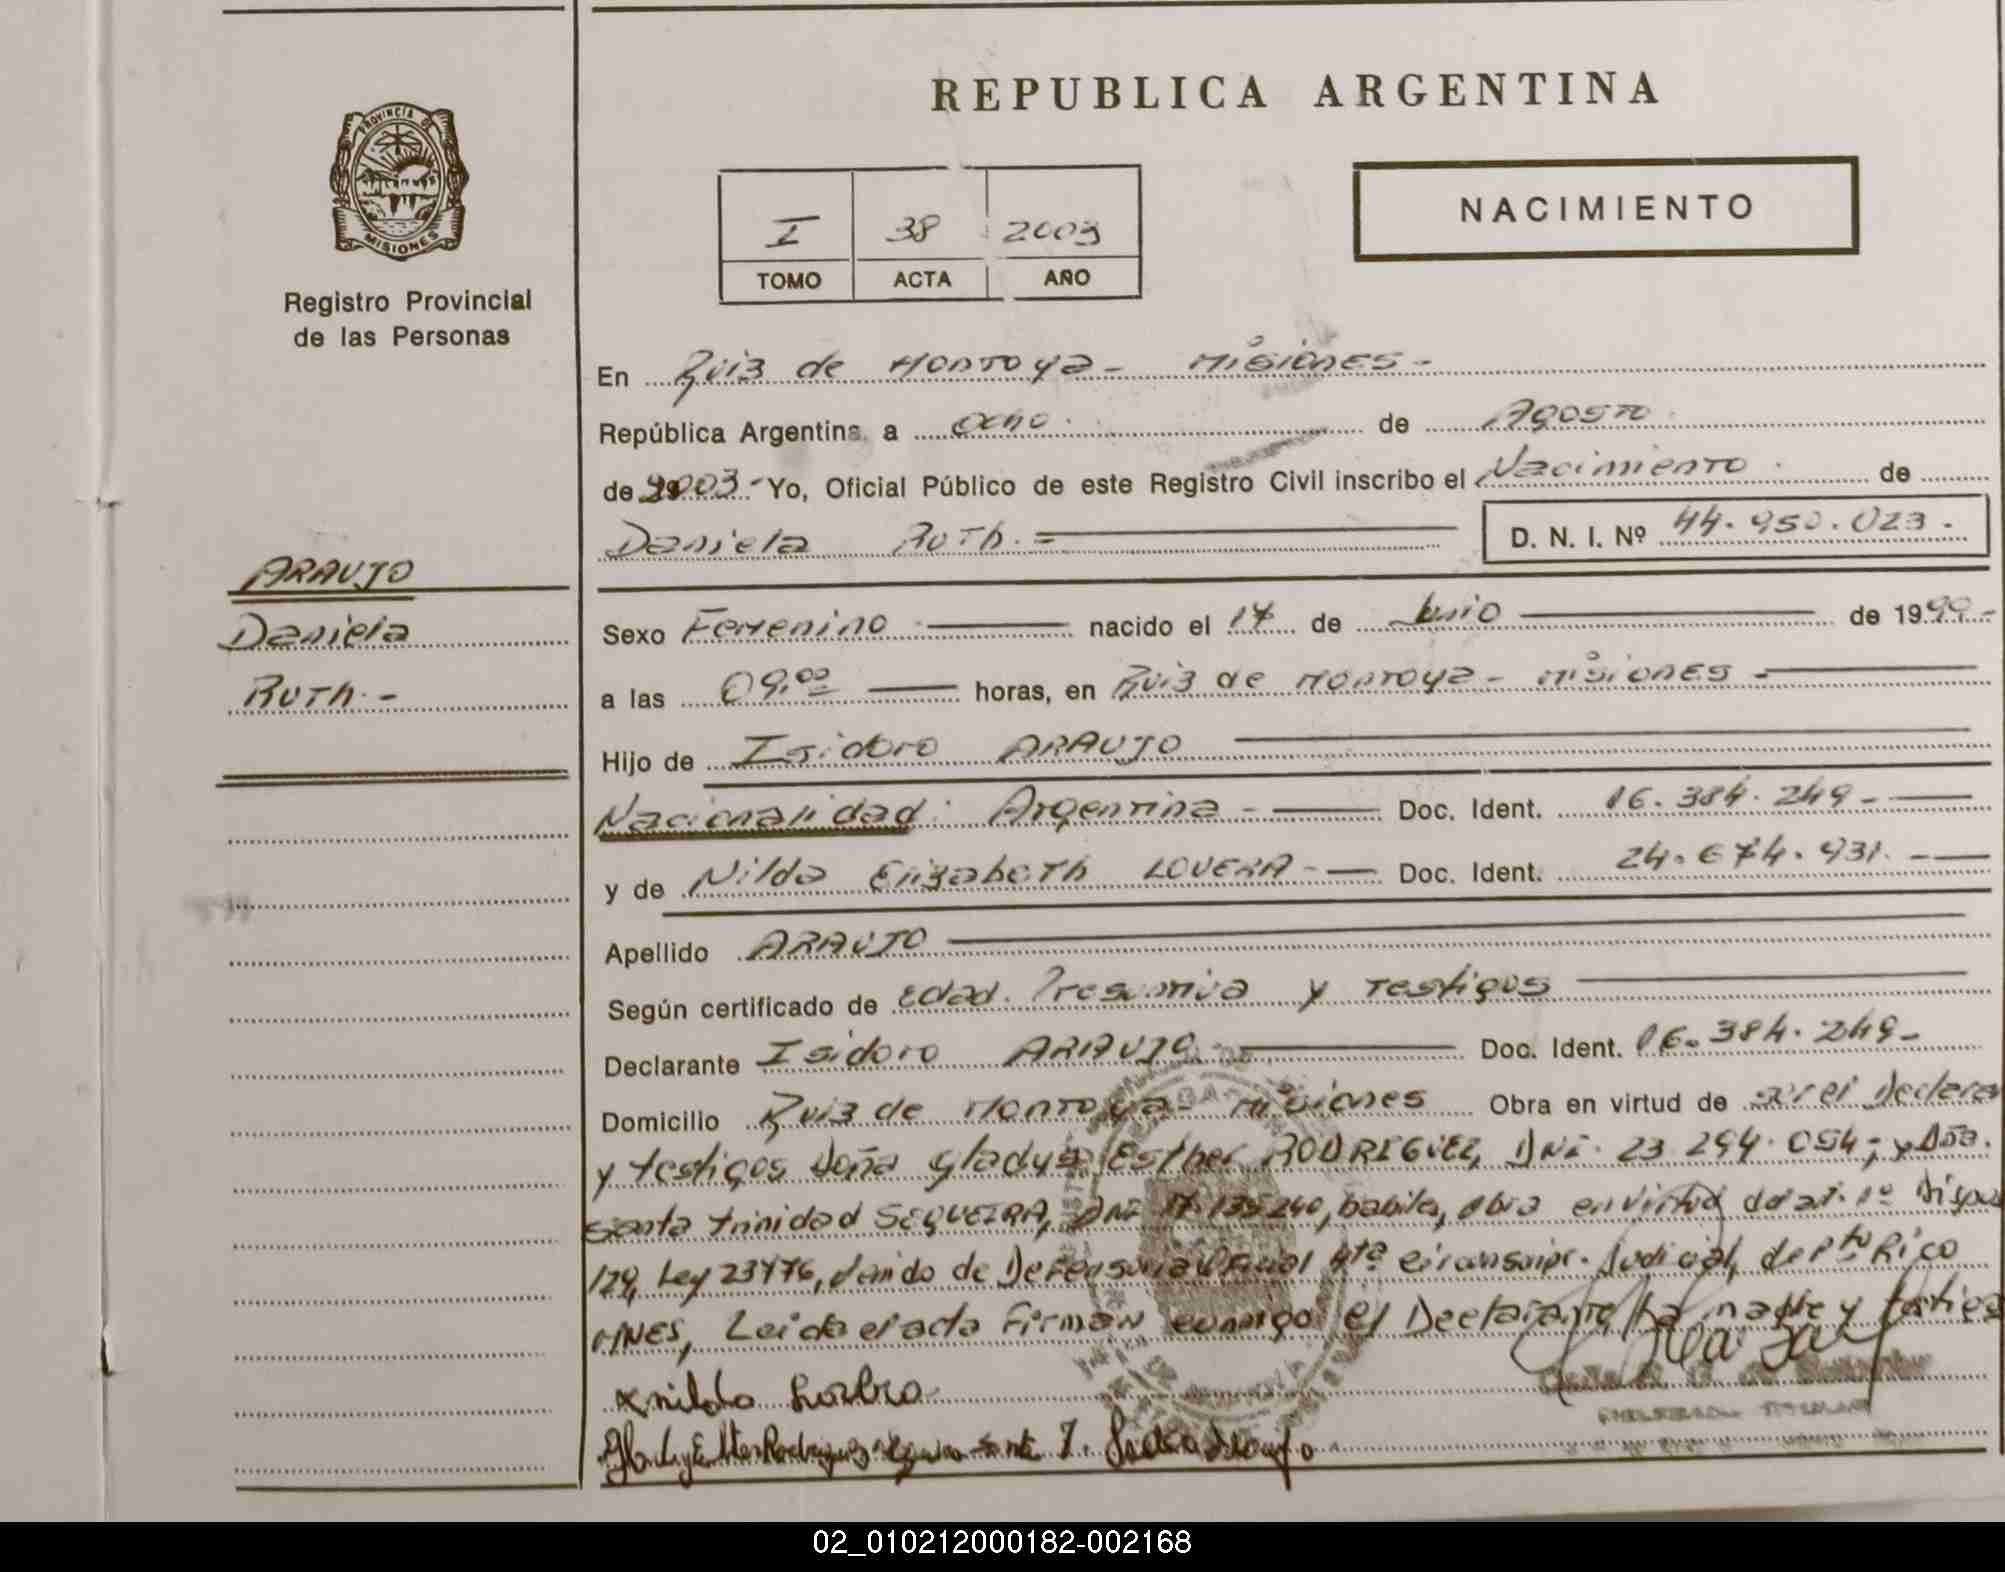 PROVINCIA DE
MISIONES
Registro Provincial
de las Personas
ARAUJO
Daniela
Ruth.-
REPUBLICA ARGENTINA
NACIMIENTO
I 38 2003
TOMO ACTA AÑO
En Ruiz de Montoya - Misiones -
República Argentina, a ocho de Agosto
de 2003 - Yo, Oficial Público de este Registro Civil inscribo el Nacimiento de
Daniela Ruth. = D. N. I. Nº 44.950.023.
Sexo Femenino nacido el 17 de Junio de 1999-
a las 09,00 horas, en Ruiz de Montoya - Misiones -
Hijo de Isidoro ARAUJO
Nacionalidad: Argentina - Doc. Ident. 16.384.249-
y de Nilda Elizabeth LOVERA - Doc. Ident. 24.674.931. -
Apellido ARAUJO
Según certificado de Edad. Presuntiva y Testigos
Declarante Isidoro ARAUJO Doc. Ident. 16.384.249-
Domicilio Ruiz de Montoya - Misiones Obra en virtud de ser el Declara
y testigos Doña Gladys Esther RODRIGUEZ, DNI. 23.294.054; y Dña.
Santa Trinidad SEQUEIRA, DNI 17.135.240, habiles, obra en virtud del art. 1º Dispos
129, Ley 23776, de Defensoria Oficial 4ta circunscripc. Judicial, de Pto Rico
MNES, Leida el acta Firman conmigo el Declarante, la madre y testigos
Nilda
Gladys Esther Rodriguez Santa T. Isidoro Araujo
02_010212000182-002168